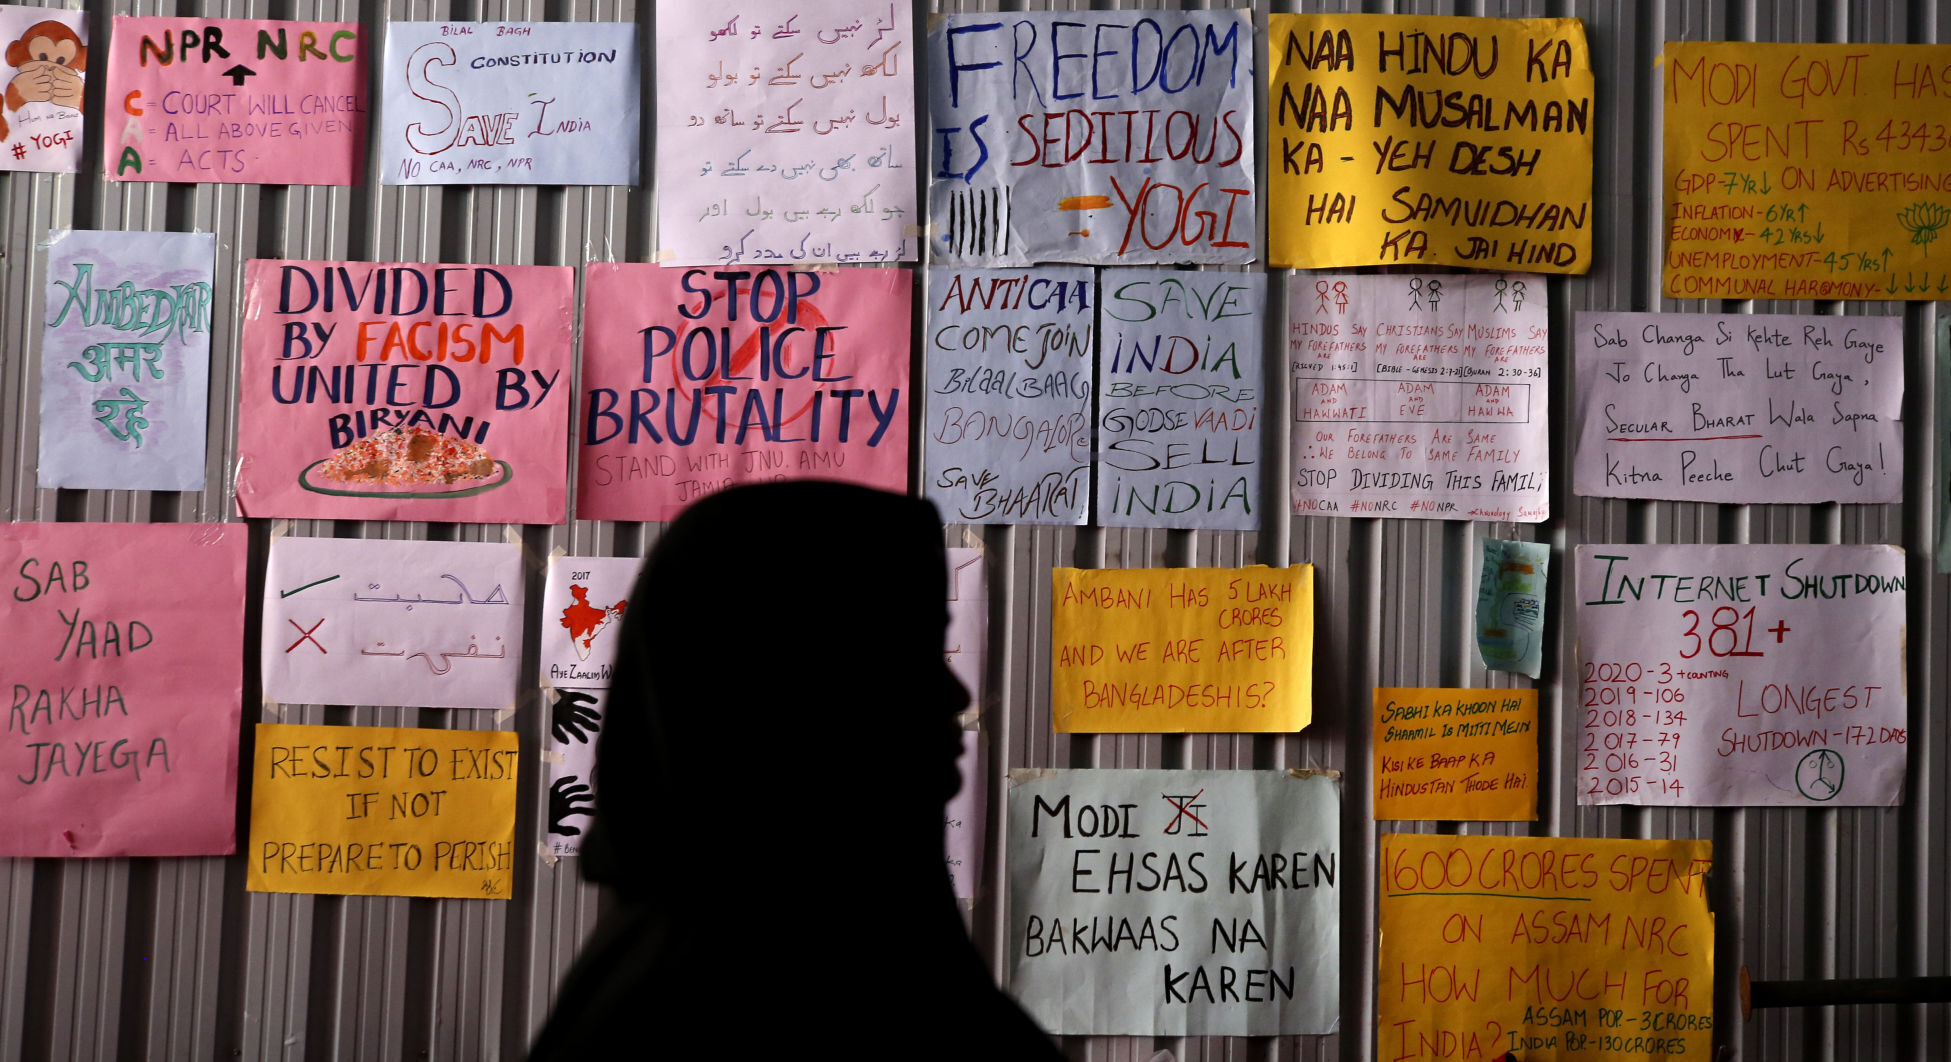 # YOGI
NPR NRC
C = COURT WILL CANCEL
A = ALL ABOVE GIVEN
A = ACTS
BILAL BAGH
CONSTITUTION
SAVE INDIA
NO CAA, NRC, NPR
لڑ نہیں سکتے تو لکھو
لکھ نہیں سکتے تو بولو
بول نہیں سکتے تو ساتھ دو
ساتھ بھی نہیں دے سکتے تو
جو لکھ رہے ہیں بول اور
لڑ رہے ہیں ان کی مدد کرو
FREEDOM
IS SEDITIOUS
- YOGI
NAA HINDU KA
NAA MUSALMAN
KA - YEH DESH
HAI SAMVIDHAN
KA. JAI HIND
MODI GOVT. HAS
SPENT Rs 4343
GDP-7YR↓ ON ADVERTISING
INFLATION-6YR↑
ECONOMY-42YRS↓
UNEMPLOYMENT-45YRS↑
COMMUNAL HARMONY-↓↓↓↓
AMBEDKAR
अमर
रहे
DIVIDED
BY FACISM
UNITED BY
BIRYANI
STOP
POLICE
BRUTALITY
STAND WITH JNU. AMU
ANTI CAA
COME JOIN
BILAAL BAAG
BANGALORe
SAVE
BHAARAt!
SAVE
INDIA
BEFORE
GODSEVAADI
SELL
INDIA
HINDUS SAY
MY FOREFATHERS
ARE
ADAM
AND
HAWWATI
CHRISTIANS SAY
MY FOREFATHERS
ARE
[BIBLE - GENESIS 2:7-21]
ADAM
AND
EVE
MUSLIMS SAY
MY FOREFATHERS
ARE
[QURAN 2:30-36]
ADAM
AND
HAWWA
OUR FOREFATHERS ARE SAME
∴ WE BELONG TO SAME FAMILY
STOP DIVIDING THIS FAMILY
#NOCAA #NONRC #NONPR
Sab Changa Si Kehte Reh Gaye
Jo Changa Tha Lut Gaya,
SECULAR BHARAT Wala Sapna
Kitna Peeche Chut Gaya!
SAB
YAAD
RAKHA
JAYEGA
محبت
نفرت
2017
AYE ZAALIM
RESIST TO EXIST
IF NOT
PREPARE TO PERISH
AMBANI HAS 5 LAKH
CRORES
AND WE ARE AFTER
BANGLADESHIS?
INTERNET SHUTDOWN
381+
2020-3 +COUNTING
2019-106
2018-134
2017-79
2016-31
2015-14
LONGEST
SHUTDOWN-172 DAYS
SABHI KA KHOON HAI
SHAAMIL IS MITTI MEIN
KISI KE BAAP KA
HINDUSTAN THODE HAI.
MODI JI
EHSAS KAREN
BAKWAAS NA
KAREN
1600 CRORES SPENT
ON ASSAM NRC
HOW MUCH FOR
INDIA?
ASSAM POP.-3CRORES
INDIA POP-130CRORES